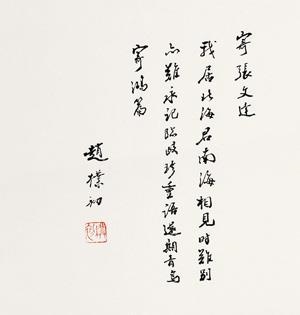 寄張文達
我居北海君南海相見時難別
亦難永記臨歧珍重語遙期青鳥
寄鴻篇
趙樸初